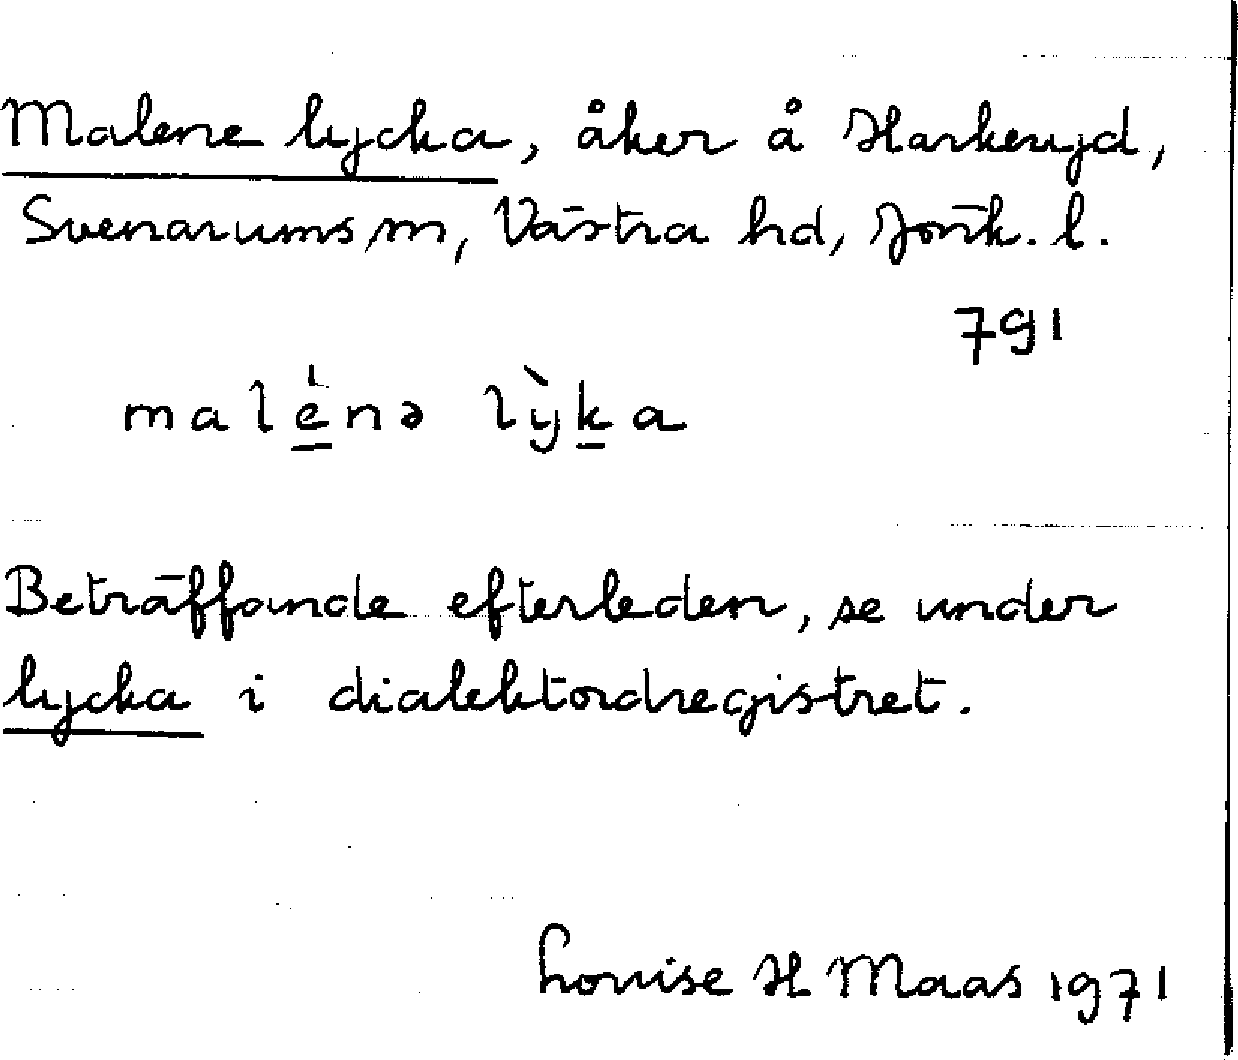 Malene lycka, åker å Harkeryd,
Svenarums sn, Västra hd, Jönk. l.
791
malénə lỳka
Beträffande efterleden, se under
lycka i dialektordregistret.
Louise H Maas 1971